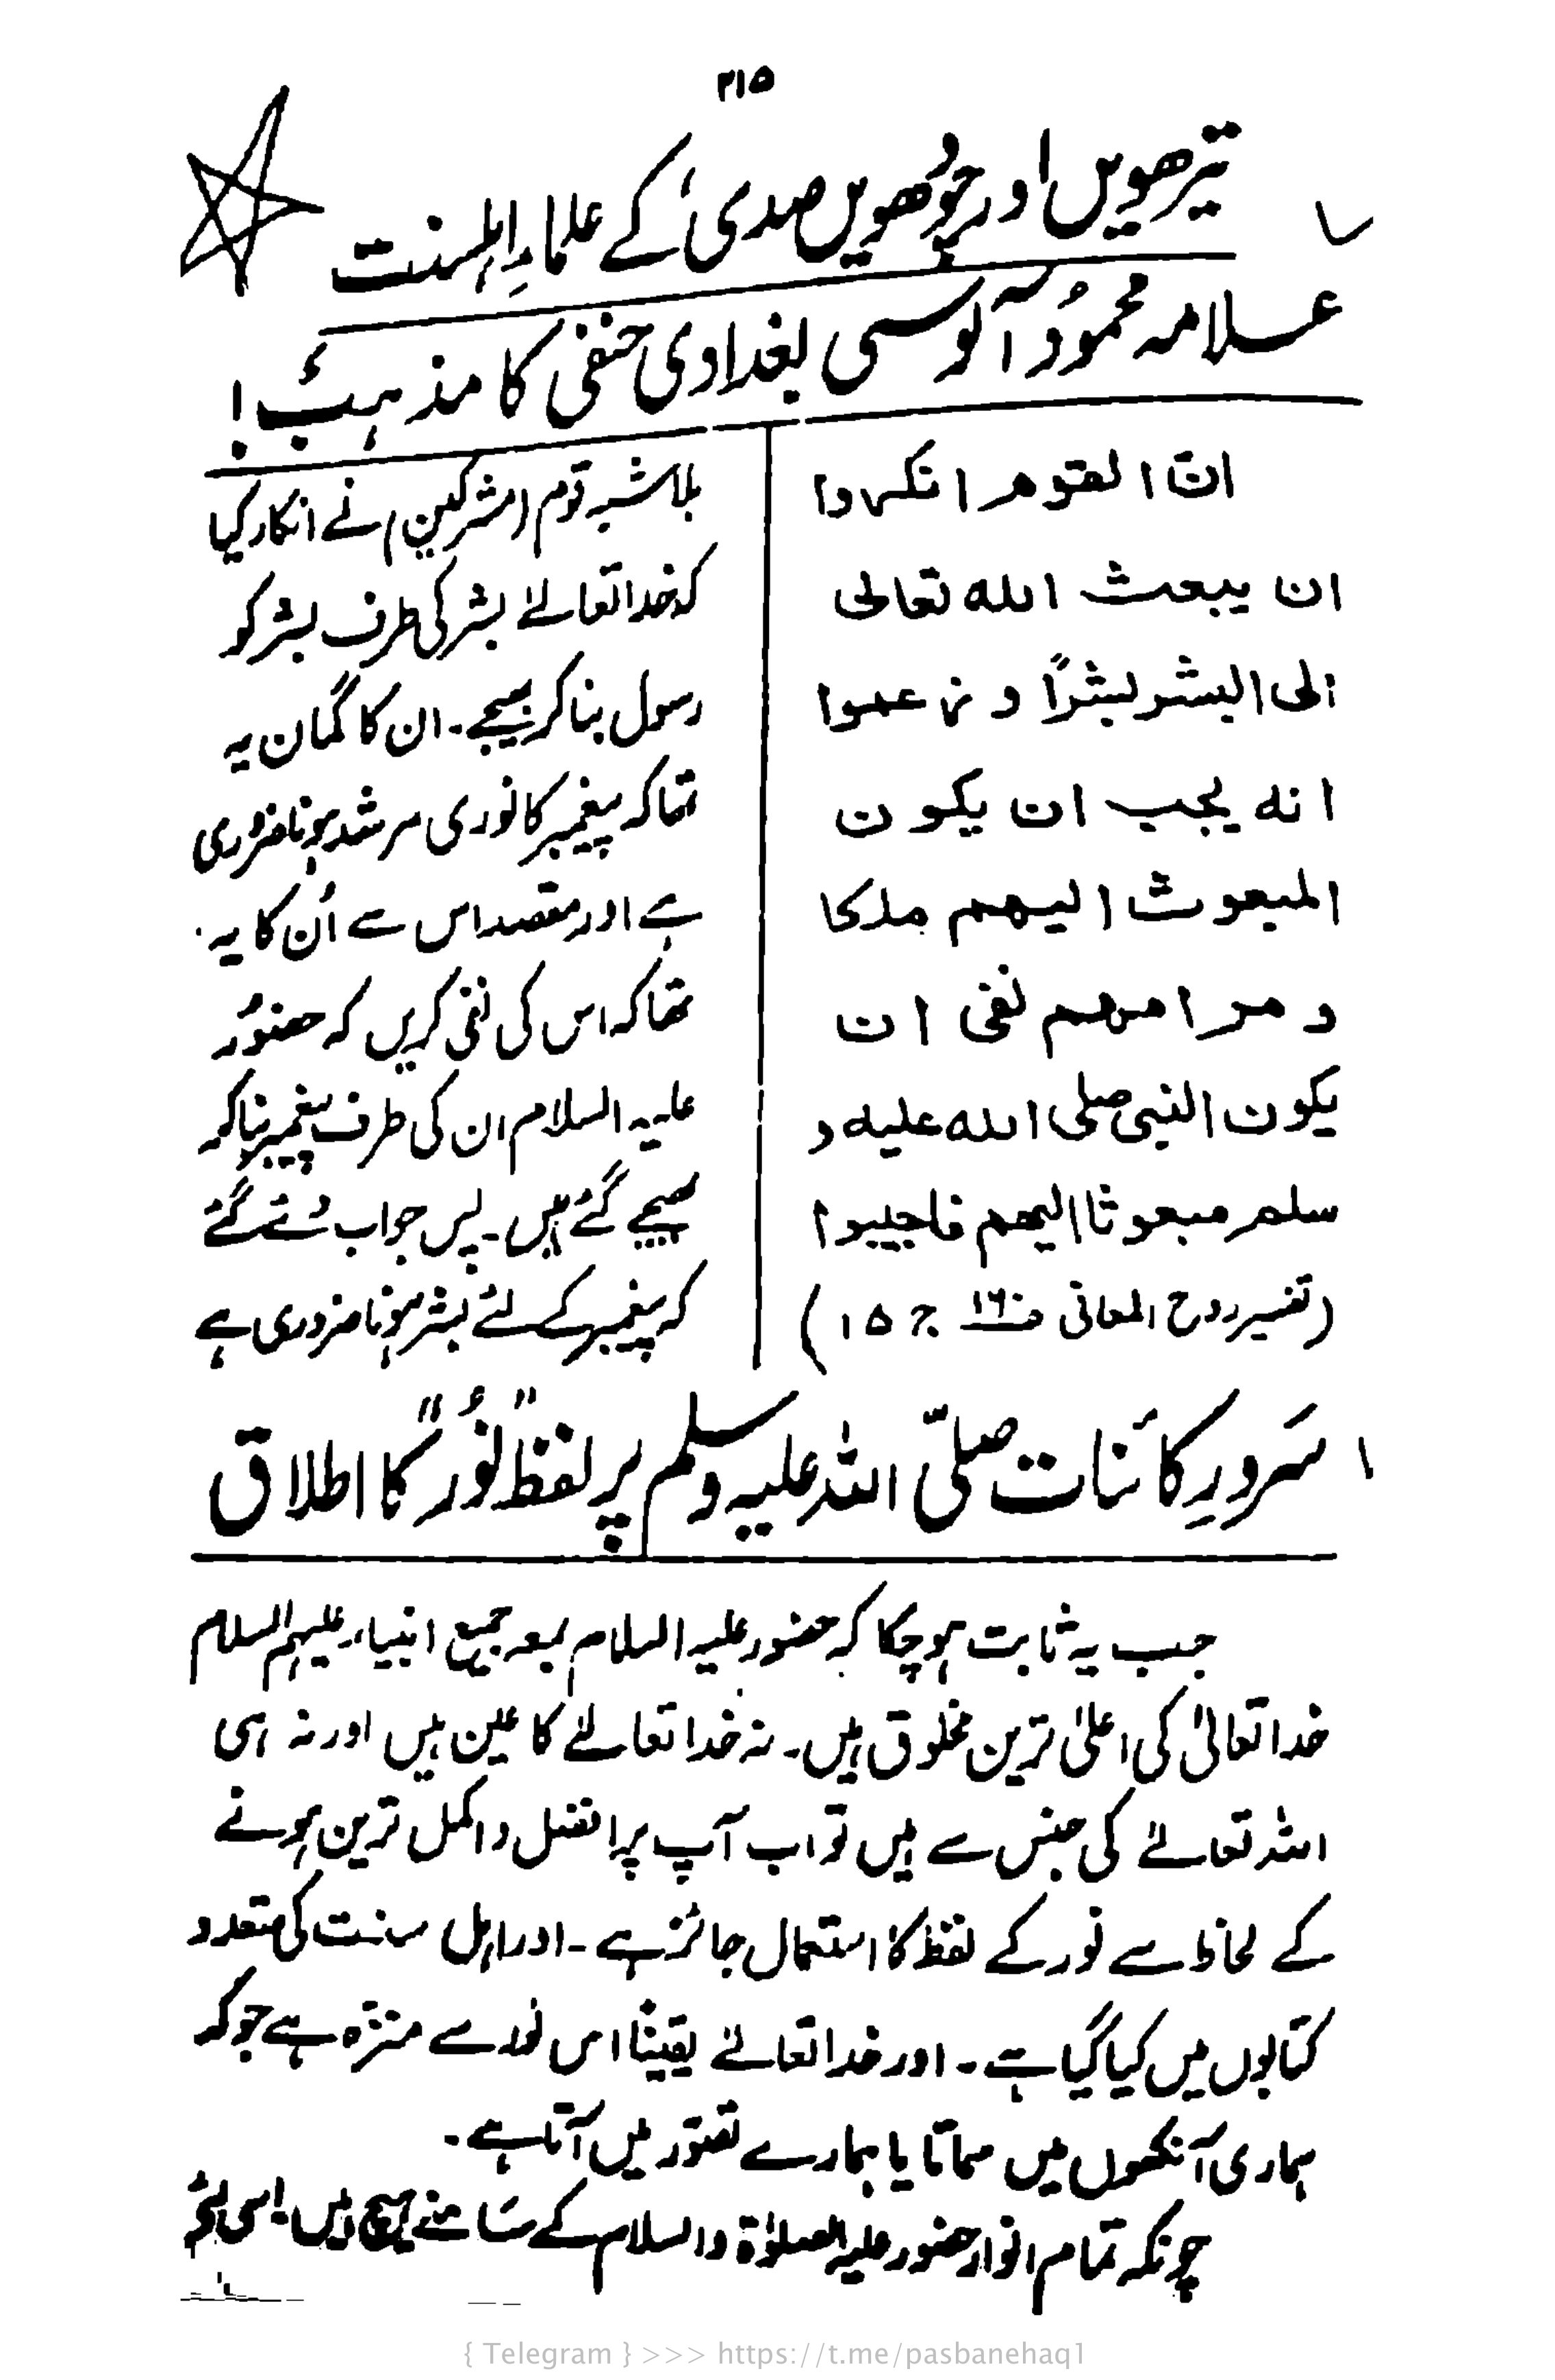 ۳۱۵
تیرھویں اور چودھویں صدی کے علماءِ اہلسنت
علامہ محمود آلوسی بغدادی حنفی کا مذہب!
انّ القوم انکروا
ان یبعث الله تعالی
الی البشر بشراً و زعموا
انه یجب ان یکون
المبعوث الیهم ملکا
و مرامهم نفی ان
یکون النبی صلی الله علیه و
سلم مبعوثا الیهم فاجیبوا
(تفسیر روح المعانی ص۱۶۰ ج ۱۵)
بلاشبہ قوم (مشرکین) نے انکار کیا
کہ خدا تعالےٰ بشر کی طرف بشر کو
رسول بنا کر بھیجے۔ ان کا گمان یہ
تھا کہ پیغمبر کا نوری سرشد ہونا ضروری
ہے اور مقصد اس سے اُن کا یہ
تھا کہ اس کی نفی کریں کہ حضورؐ
علیہ السلام ان کی طرف پیغمبر بنا کر
بھیجے گئے ہیں۔ پس جواب دئے گئے
کہ پیغمبر کے لئے بشر ہونا ضروری ہے
سَرورِ کائنات صلّی اللہ علیہ وسلم پر لفظ "نُور" کا اطلاق
جب یہ ثابت ہو چکا کہ حضور علیہ السلام بمعہ جمیع انبیاء علیہم السلام
خدا تعالیٰ کی اعلیٰ ترین مخلوق ہیں۔ نہ خدا تعالےٰ کا عین ہیں اور نہ ہی
اللہ تعالےٰ کی جنس سے ہیں تو اب آپ پر افضل و اکمل ترین ہونے
کے لحاظ سے نور کے لفظ کا استعمال جائز ہے۔ اور اہل سنت کی متعدد
کتابوں میں کیا گیا ہے۔ اور خدا تعالےٰ یقیناً اس نور سے منزّہ ہے جو کہ
ہماری آنکھوں میں سماتا یا ہمارے تصوّر میں آتا ہے۔
چونکہ تمام انوار حضور علیہ الصلوٰۃ والسلام کے سامنے ہیچ ہیں۔ اسی لئے
{ Telegram } >>> https://t.me/pasbanehaq1